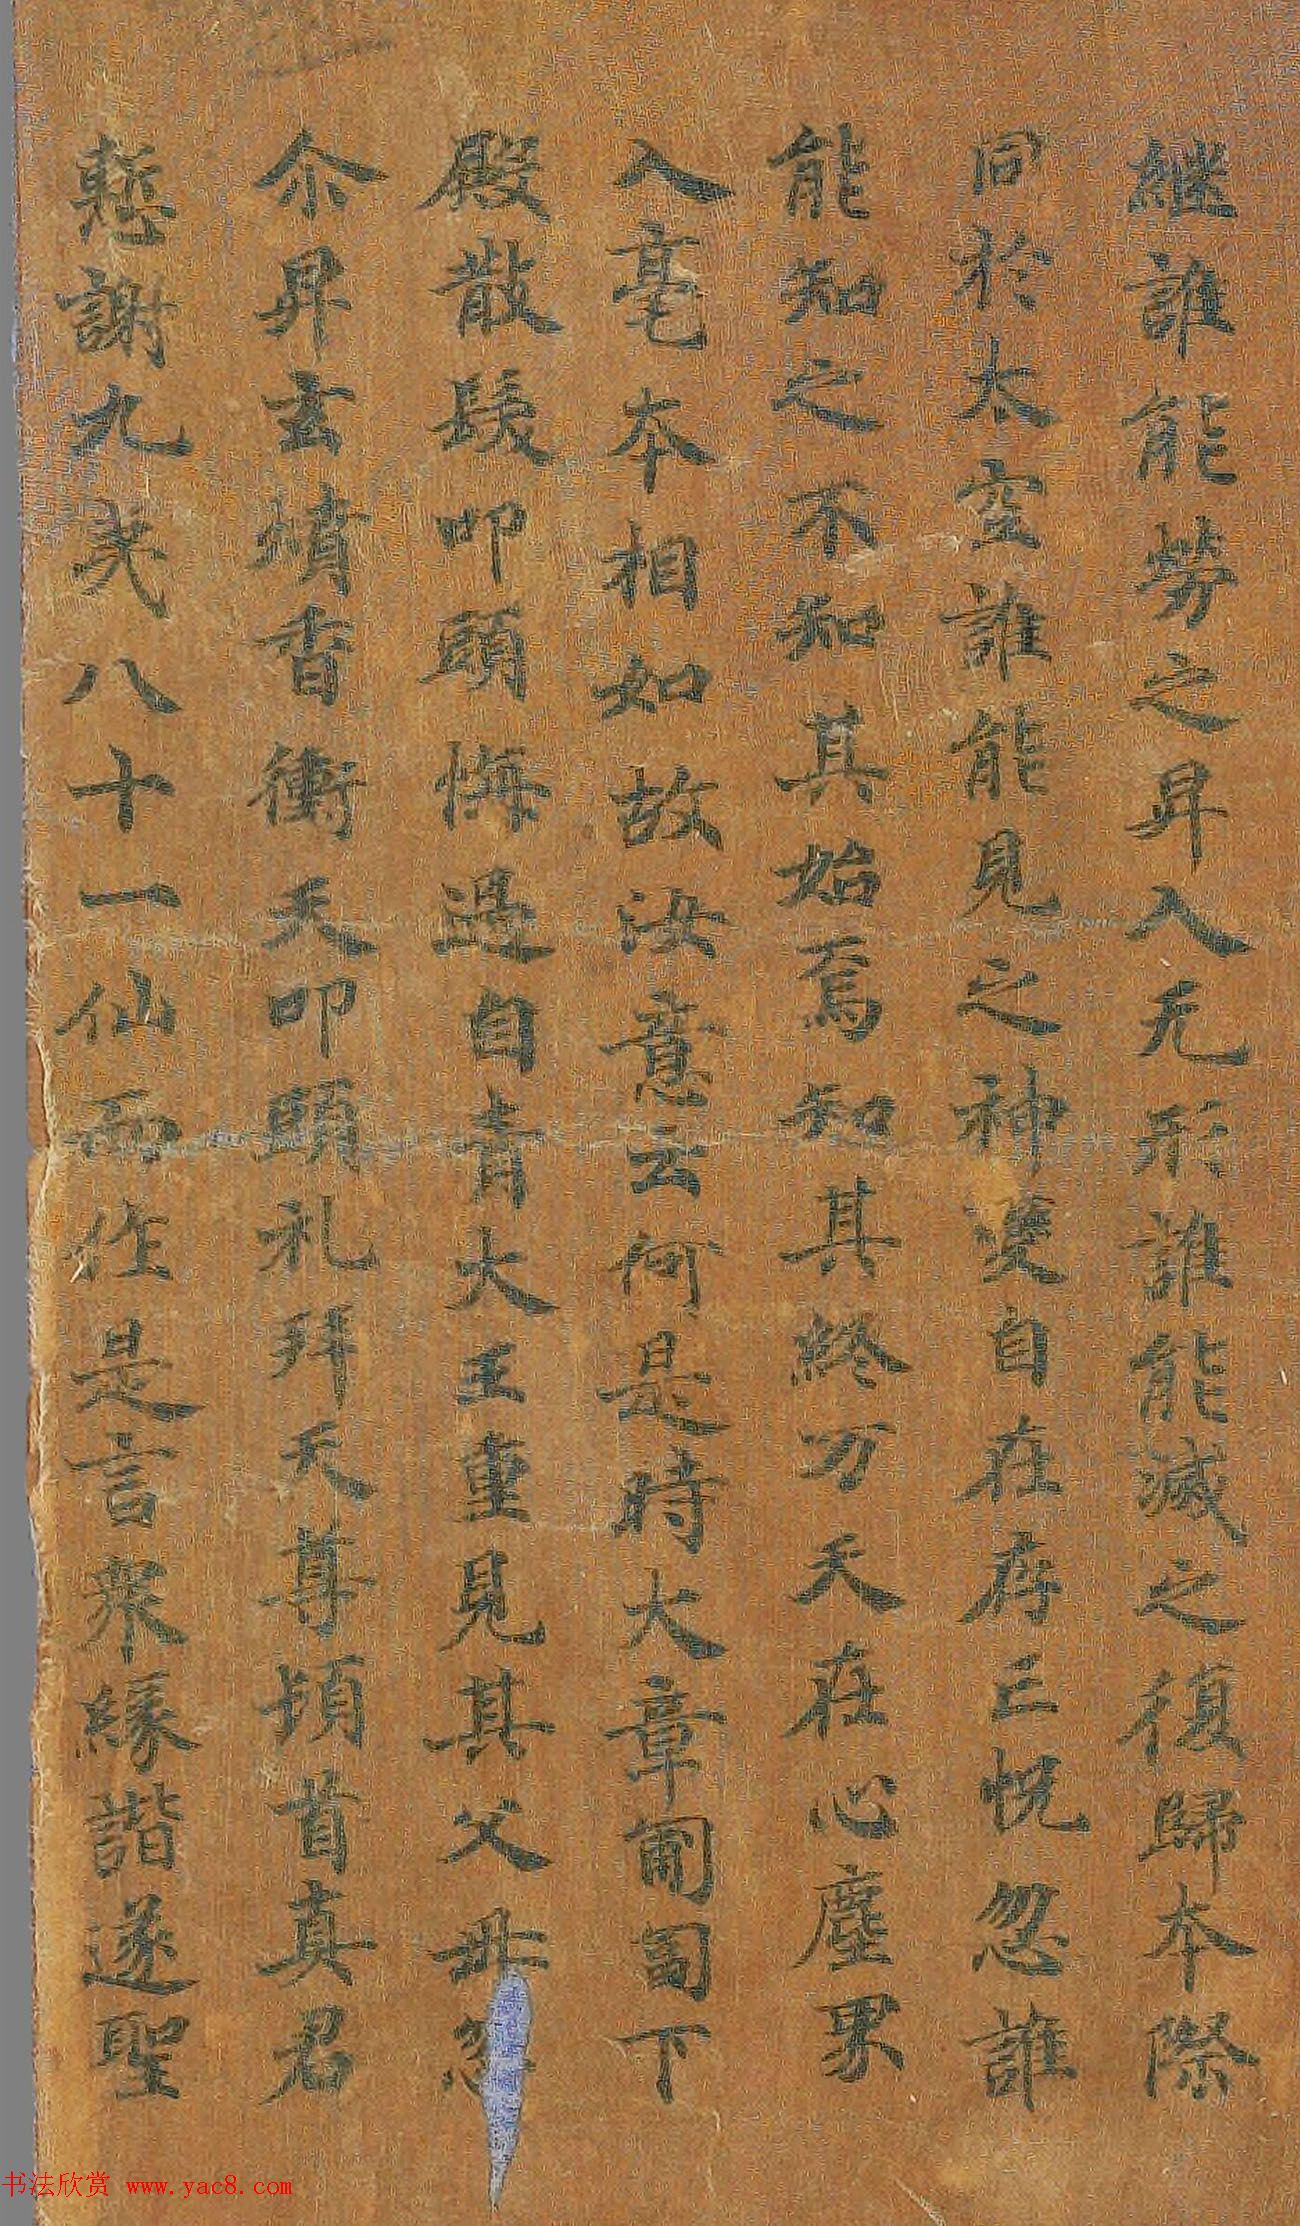 継誰能勞之昇入无形誰能滅之復歸本際
同於太空誰能見之神變自在存亡恍忽誰
能知之不知其始焉知其終万天在心塵界
入毫本相如故汝意云何是時大章匍匐下
殿散髮叩頭悔過自責大王重見其父母忽
尒昇玄墳香衝天叩頭礼拜天尊頓首真君
慙謝九老八十一仙而作是言眾緣諧遂聖
书法欣赏 www.yac8.com